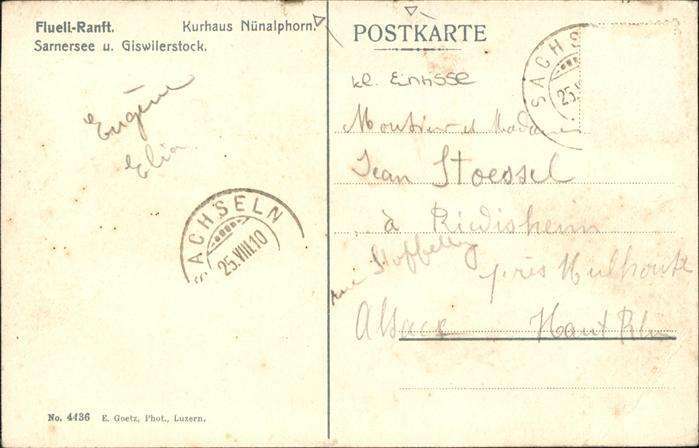 Flueli-Ranft. Kurhaus Nünalphorn.
Sarnersee u. Giswilerstock.
Eugène
Elia
SACHSELN
25.VIII.10
No. 4436 E. Goetz, Phot., Luzern.
POSTKARTE
SACHS
25.V
kl. Einrisse
Monsieur et Madame
Jean Stoessel
à Riedisheim
rue près Mulhouse
Alsace Haut Rhin